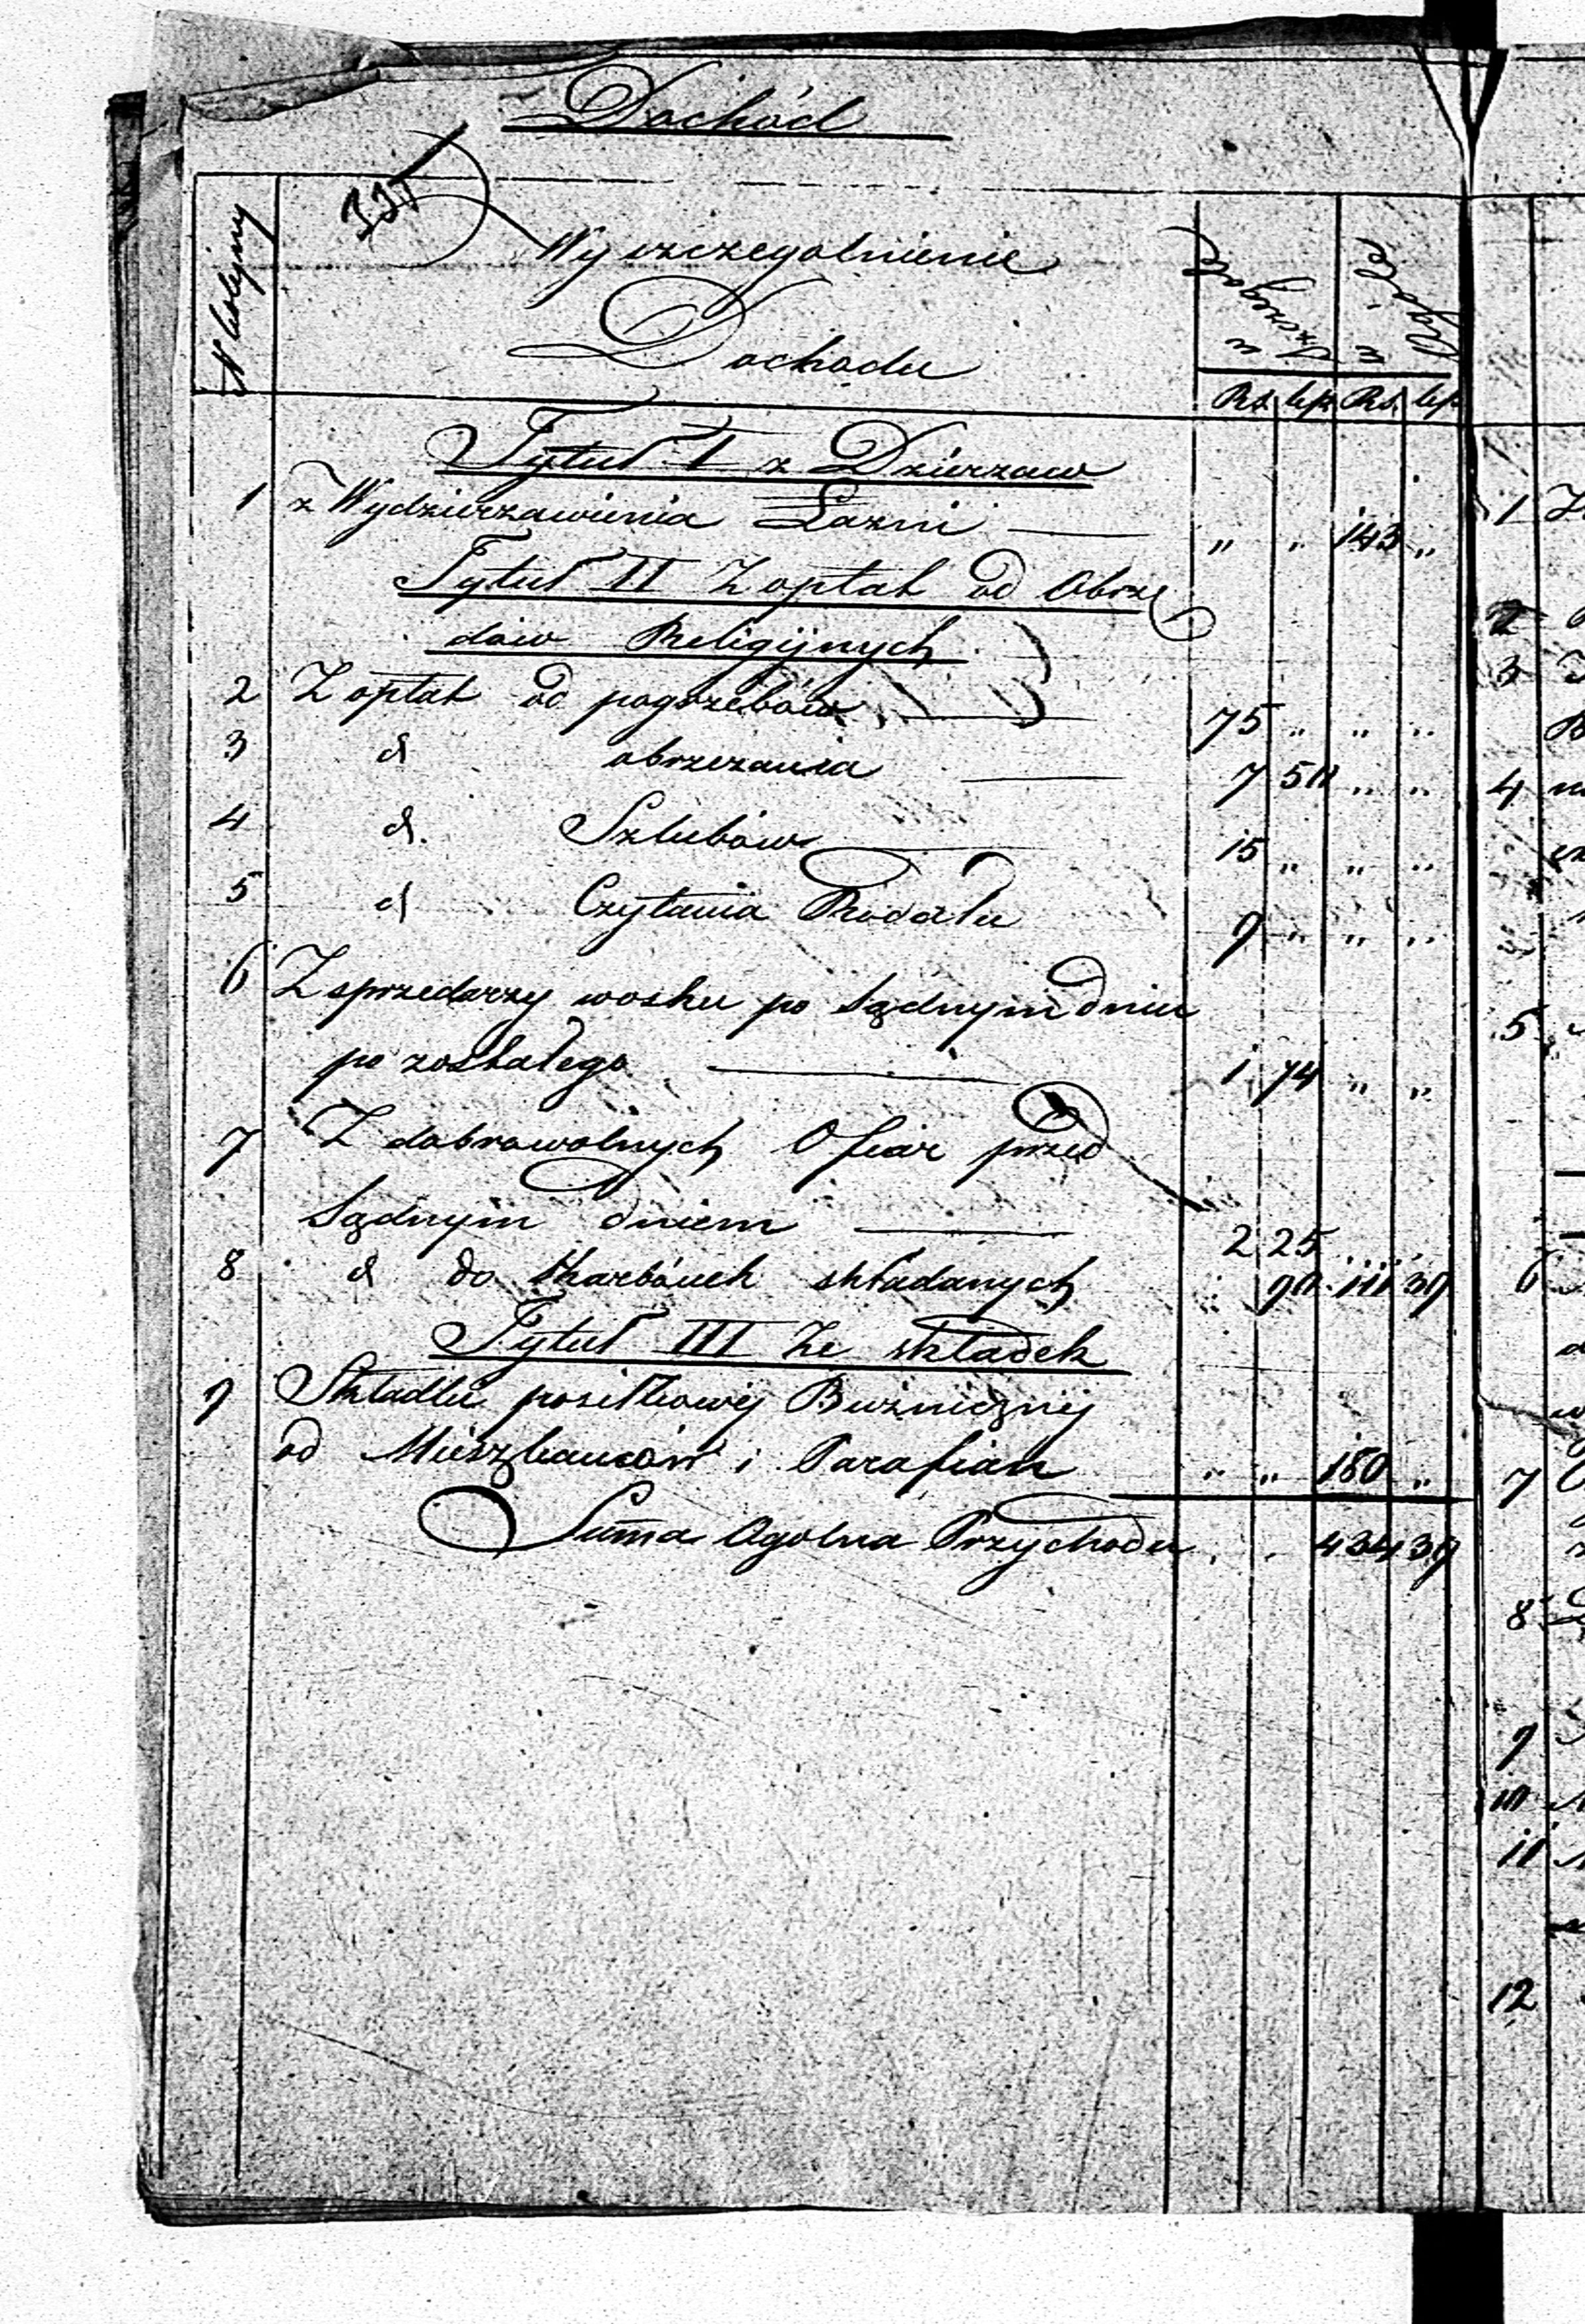 Dochód
N kolejny
Wyszczegolnienie
Dochodu
w Szczegole
w Ogóle
Rs. kp. Rs. kp
Tytuł I z Dzierzaw
1 z Wydzierzawienia Łazni „ „ 143 „
Tytuł II Z opłat od Obrzę
dów Religijnych
2 Z opłat od pogrzebów 75 „ „ „
3 d obrzezania 7 50 „ „
4 d. Szlubów 15 „ „ „
5 d Czytania Rodału 9 „ „ „
6 Z sprzedarzy wosku po Sądnym dniu
pozostałego 1 74 „ „
7 Z dobrowolnych Ofiar przed
Sądnym dniem 2 25 „ „
8 d do skarbónek składanych „ 90 111 39
Tytuł III Ze składek
9 Składki posiłkowej Bużnicznej
od Mieszkańców i Parafian „ „ 180 „
Summa Ogolna Przychodu . . 434 39
1
2
3
4
5
6
7
8
9
10
11
12